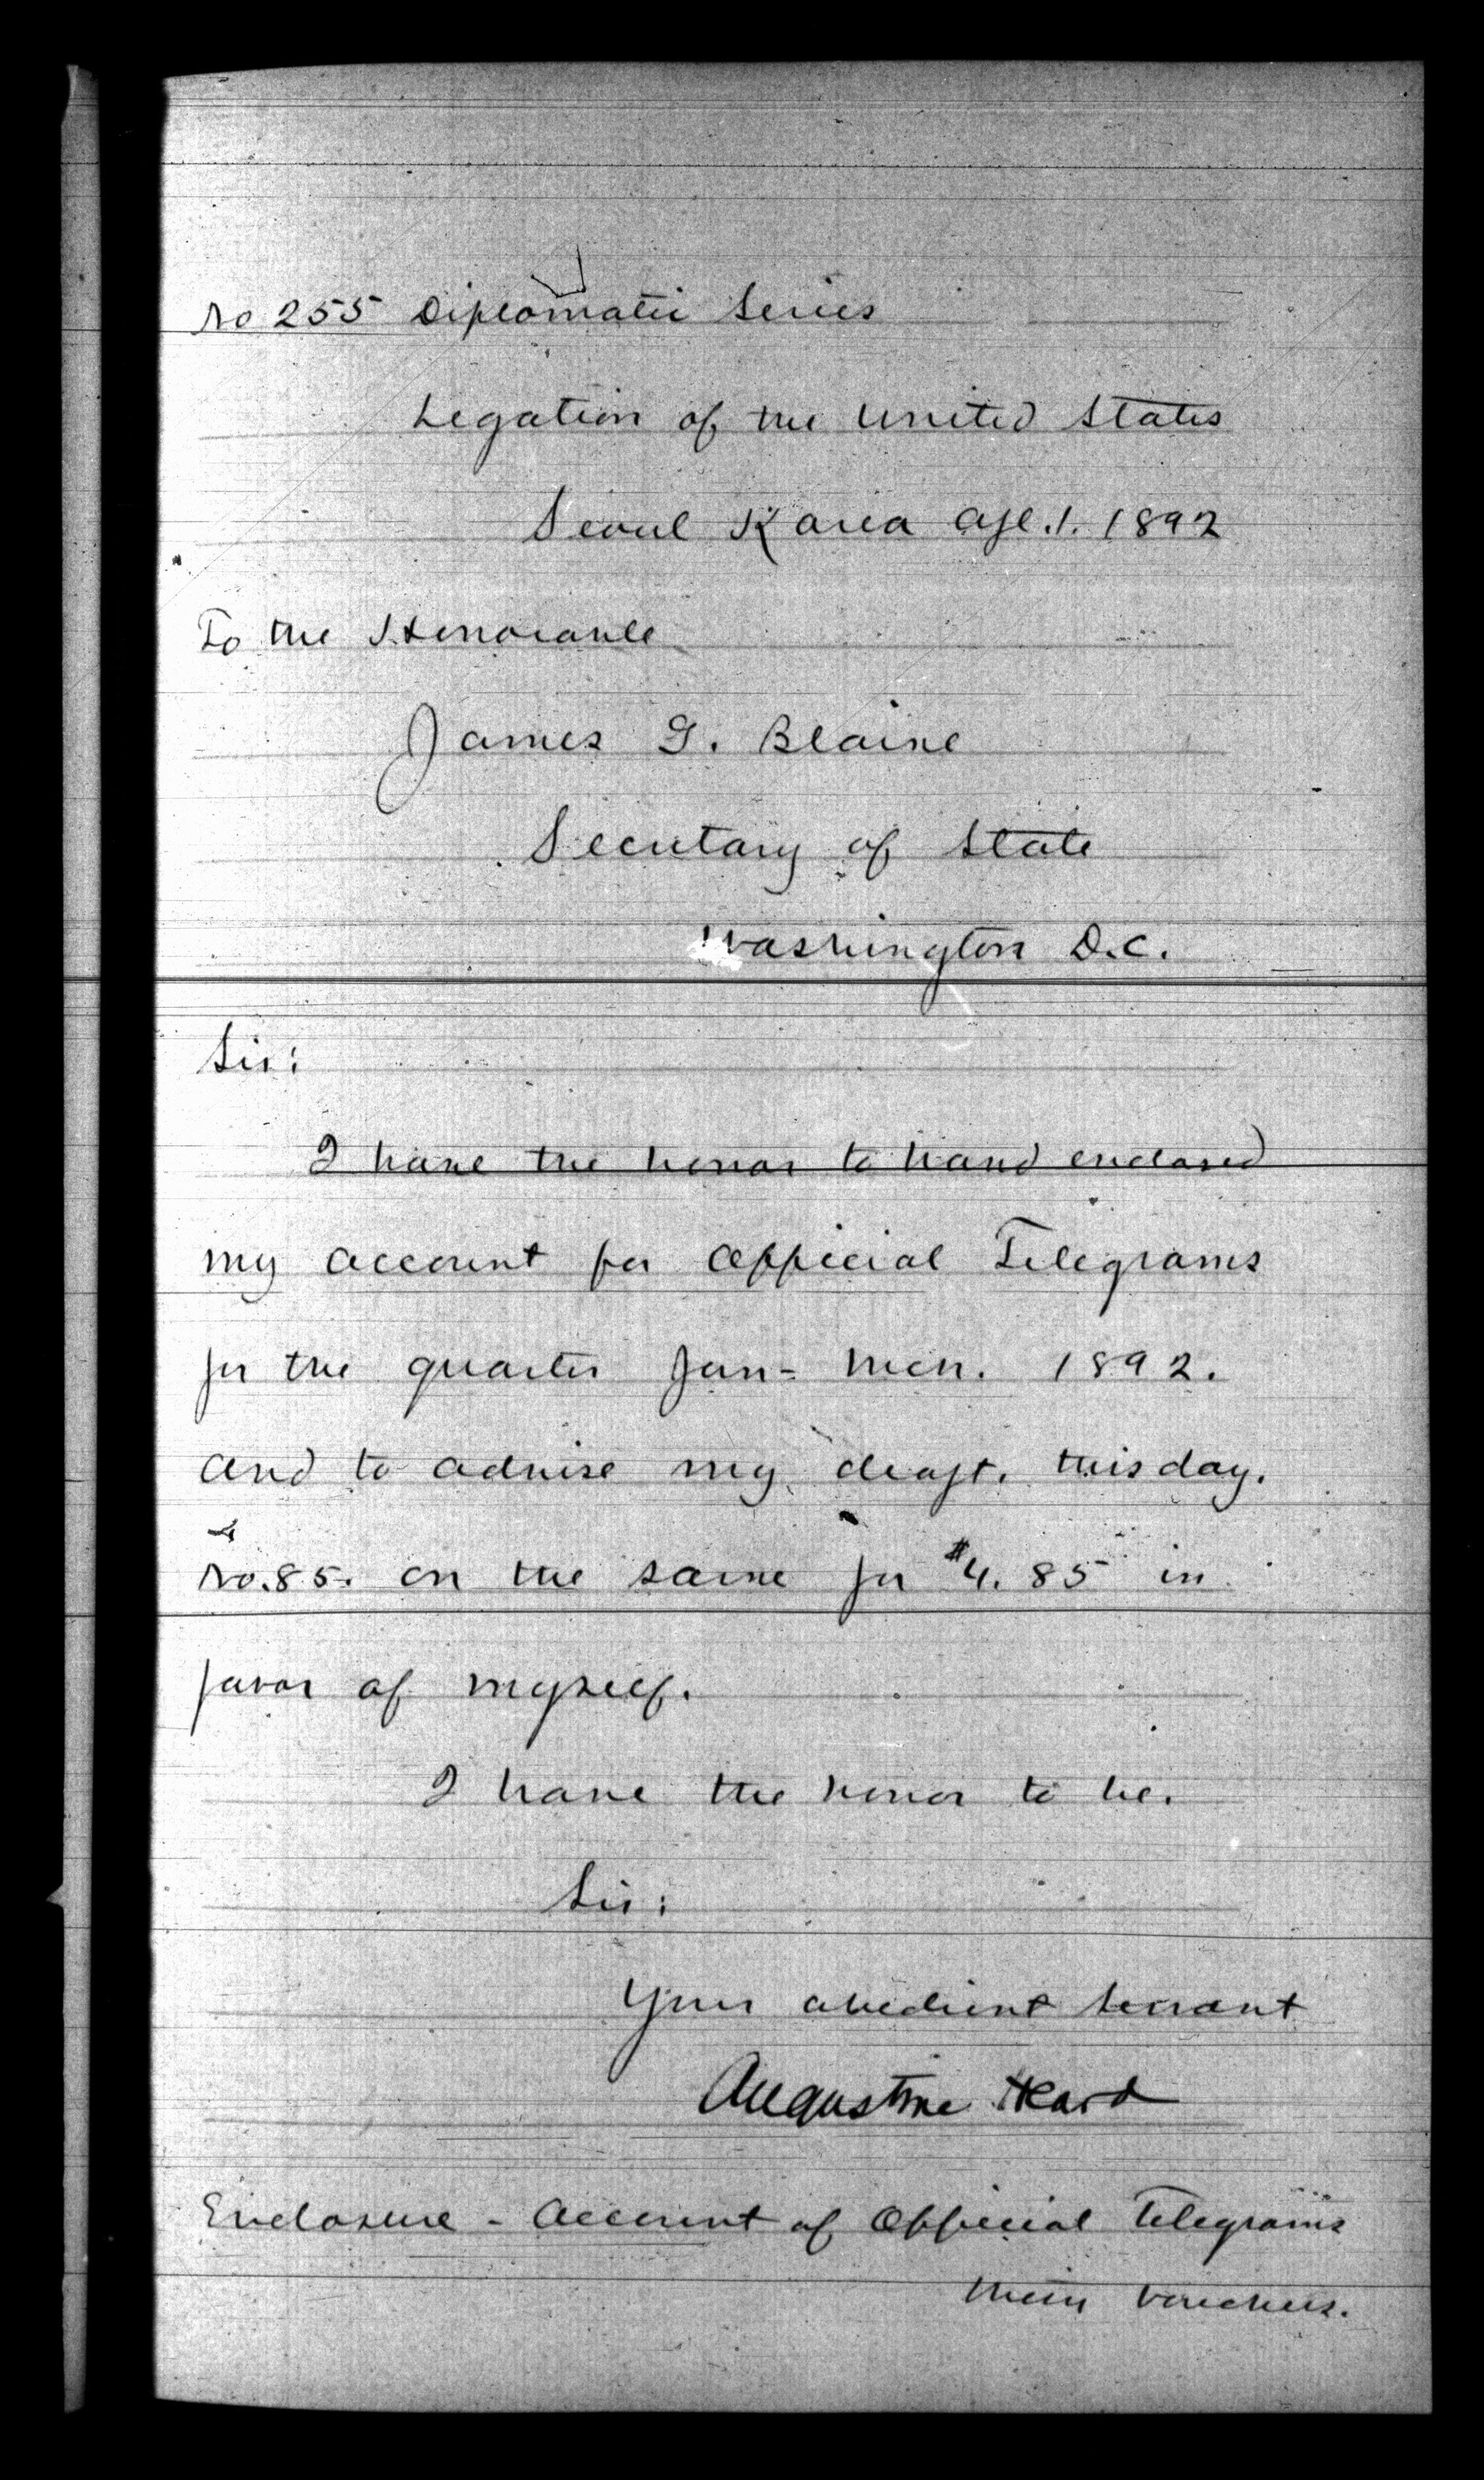 No 255 Diplomatic Series
Legation of the United States
Seoul Korea Apl. 1. 1892
To the Honorable
James G. Blaine
Secretary of State
Washington D.C.
Sir:
I have the honor to hand enclosed
my account for Official Telegrams
for the quarter Jan - Mch. 1892.
and to advise my draft. this day.
No. 85. on the same for $4.85 in
favor of myself.
I have the honor to be.
Sir:
Your obedient servant
Augustine Heard
Enclosure - Account of Official Telegrams
vouchers.